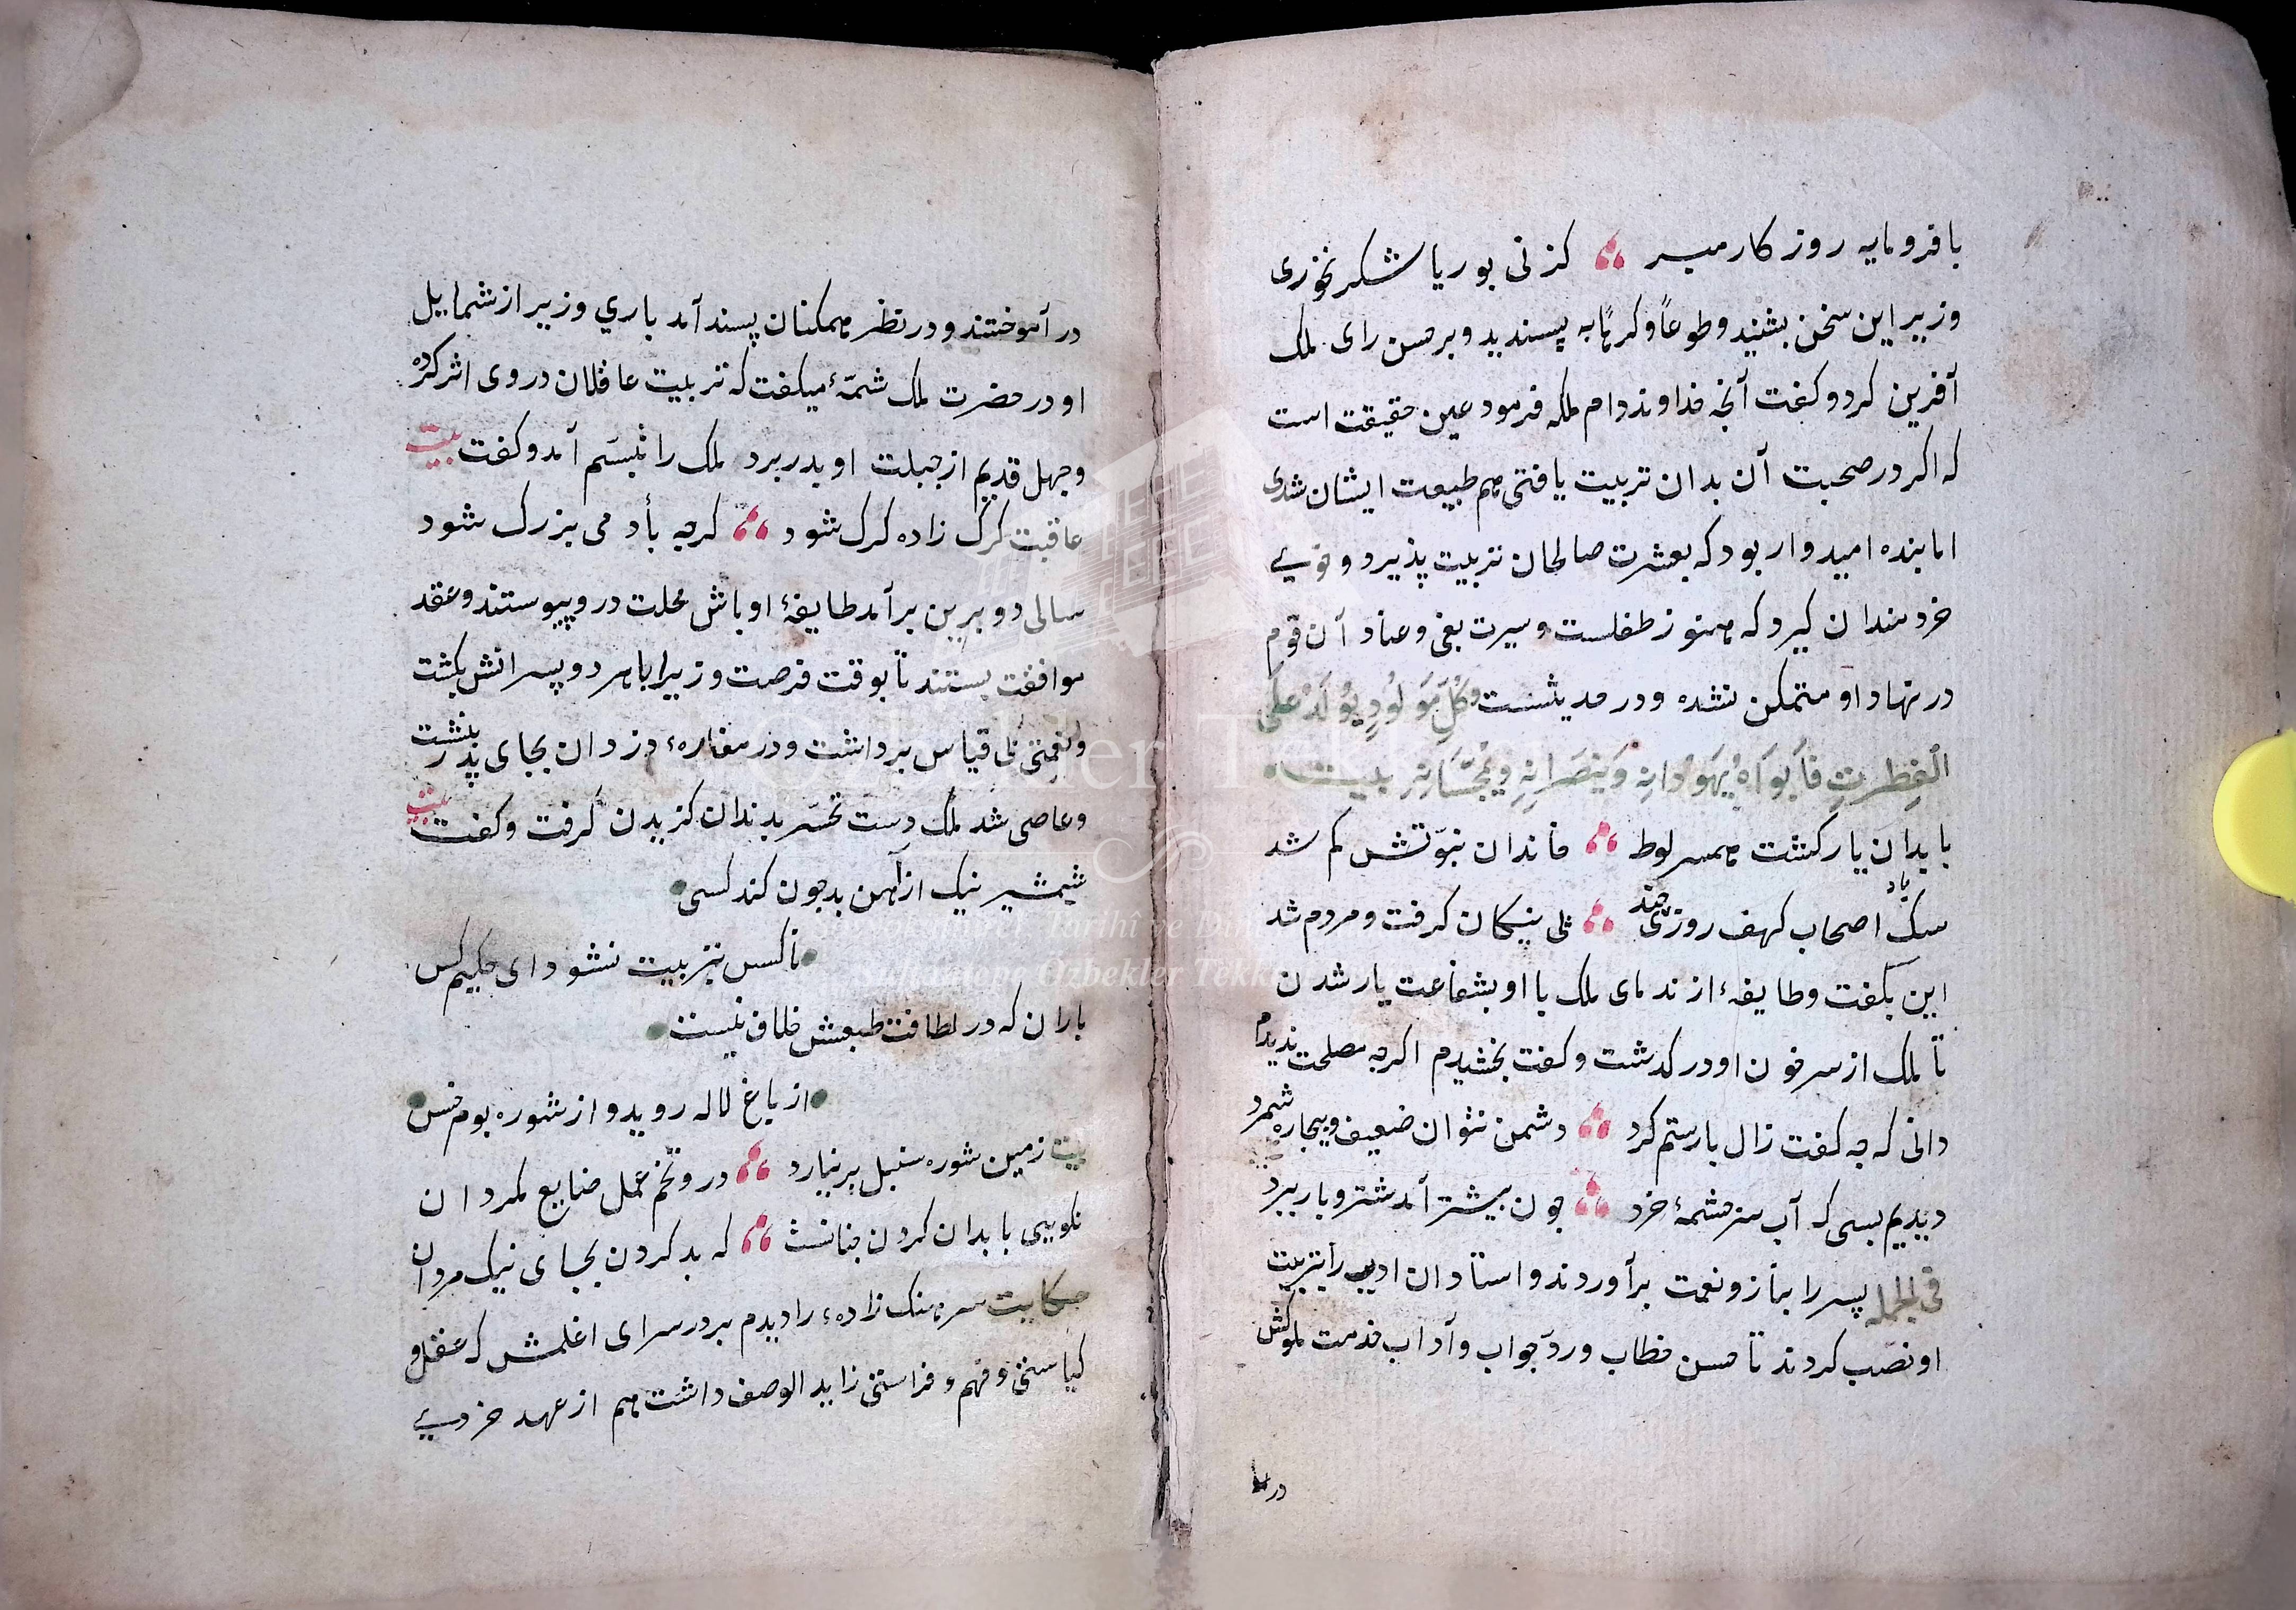 با فرومایه روز کار مبر کز نی بوریا شکر نخوری
وزیر این سخن بشنید و طوعاً و کرهًا به پسندید و بر حسن رای ملک
آفرین کرد و کفت آنچه خداوند دام ملکه فرمود عین حقیقت است
که اکر در صحبت آن بدان تربیت یافتی هم طبیعت ایشان شدی
اما بنده امیدوار بود که بعشرت صالحان تربیت پذیرد و خوی
خردمندان کیرد که هنوز طفلست و سیرت بغی و عناد آن قوم
در نهاد او متمکن نشده و در حدیثست وَکُلُّ مَوْلُودٍ یُولَدُ عَلَی
الْفِطْرَتِ فَأَبَوَاهُ یُهَوِّدَانِهِ وَیُنَصِّرَانِهِ وَیُمَجِّسَانِهِ بیت
با بدان یار کشت همسر لوط خاندان نبوّتش کم شد
سک اصحاب کهف روزی چند پی نیکان کرفت و مردم شد
این بکفت و طایفهٔ از ندمای ملک با او بشفاعت یار شدن
تا ملک از سر خون او در کذشت و کفت بخشیدم اکرچه مصلحت ندیدم
دانی که چه کفت زال با رستم کرد دشمن نتوان ضعیف و بیچاره شمرد
دیدیم بسی که آب سرچشمهٔ خرد چون بیشتر آمد شتر و بار ببرد
فی الجمله پسر را بناز و نعمت برآوردند و استادان ادیب را بتربیت
او نصب کردند تا حسن خطاب و ردّ جواب و آداب خدمت ملوکش
در
در آموختند و در نظر همکنان پسند آمد باری وزیر از شمایل
او در حضرت ملک شمّهٔ میکفت که تربیت عاقلان در وی اثر کرده
و جهل قدیم از جبلت او بدر برد ملک را تبسّم آمد و کفت بیت
عاقبت کرک زاده کرک شود کرچه با آدمی بزرک شود
سالی دو برین برآمد طایفهٔ اوباش محلت در و پیوستند و عقد
موافقت بستند تا بوقت فرصت وزیر را با هر دو پسرانش بکشت
و نعمتی بی قیاس برداشت و در مغارهء دزدان بجای پدر بنشست
و عاصی شد ملک دست تحسّر بدندان کزیدن کرفت و کفت بیت
شمشیر نیک از آهن بد چون کند کسی
ناکس بتربیت نشود ای حکیم کس
باران که در لطافت طبعش خلاف نیست
از باغ لاله روید و از شوره بوم خس
بیت زمین شوره سنبل برنیارد در و تخم عمل ضایع مکردان
نکویی با بدان کردن چنانست که بد کردن بجای نیک مردان
حکایت سرهنک زادهء را دیدم بر در سرای اغلمش که عقل و
کیاستی و فهم و فراستی زاید الوصف داشت هم از عهد خردی